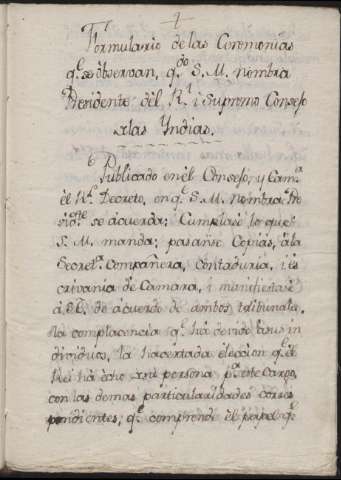 Formulario de las Ceremonias
q.e se observan, q.do S. M. nombra
Presidente del R.l i Supremo Consejo
de las Yndias.
Publicado en el Consejo, y Cam.a
el R.l Decreto, en q.e S. M. nombra Pre
sid.nte se acuerda; Cumplase lo que
S. M. manda; pasanse Copias, à la
Secret.a Compañera, Contaduria, i es
crivania de Camara, i manifiestase
à S.E. de acuerdo de ambos tribunals,
la complacencia q.e hà devido à sus in
dividuos, la hacertada eleccion q.e el
Rei hà echo de su persona p.a este Cargo,
con las demas particularidades corres
pondientes, q.e comprende el papel q.e